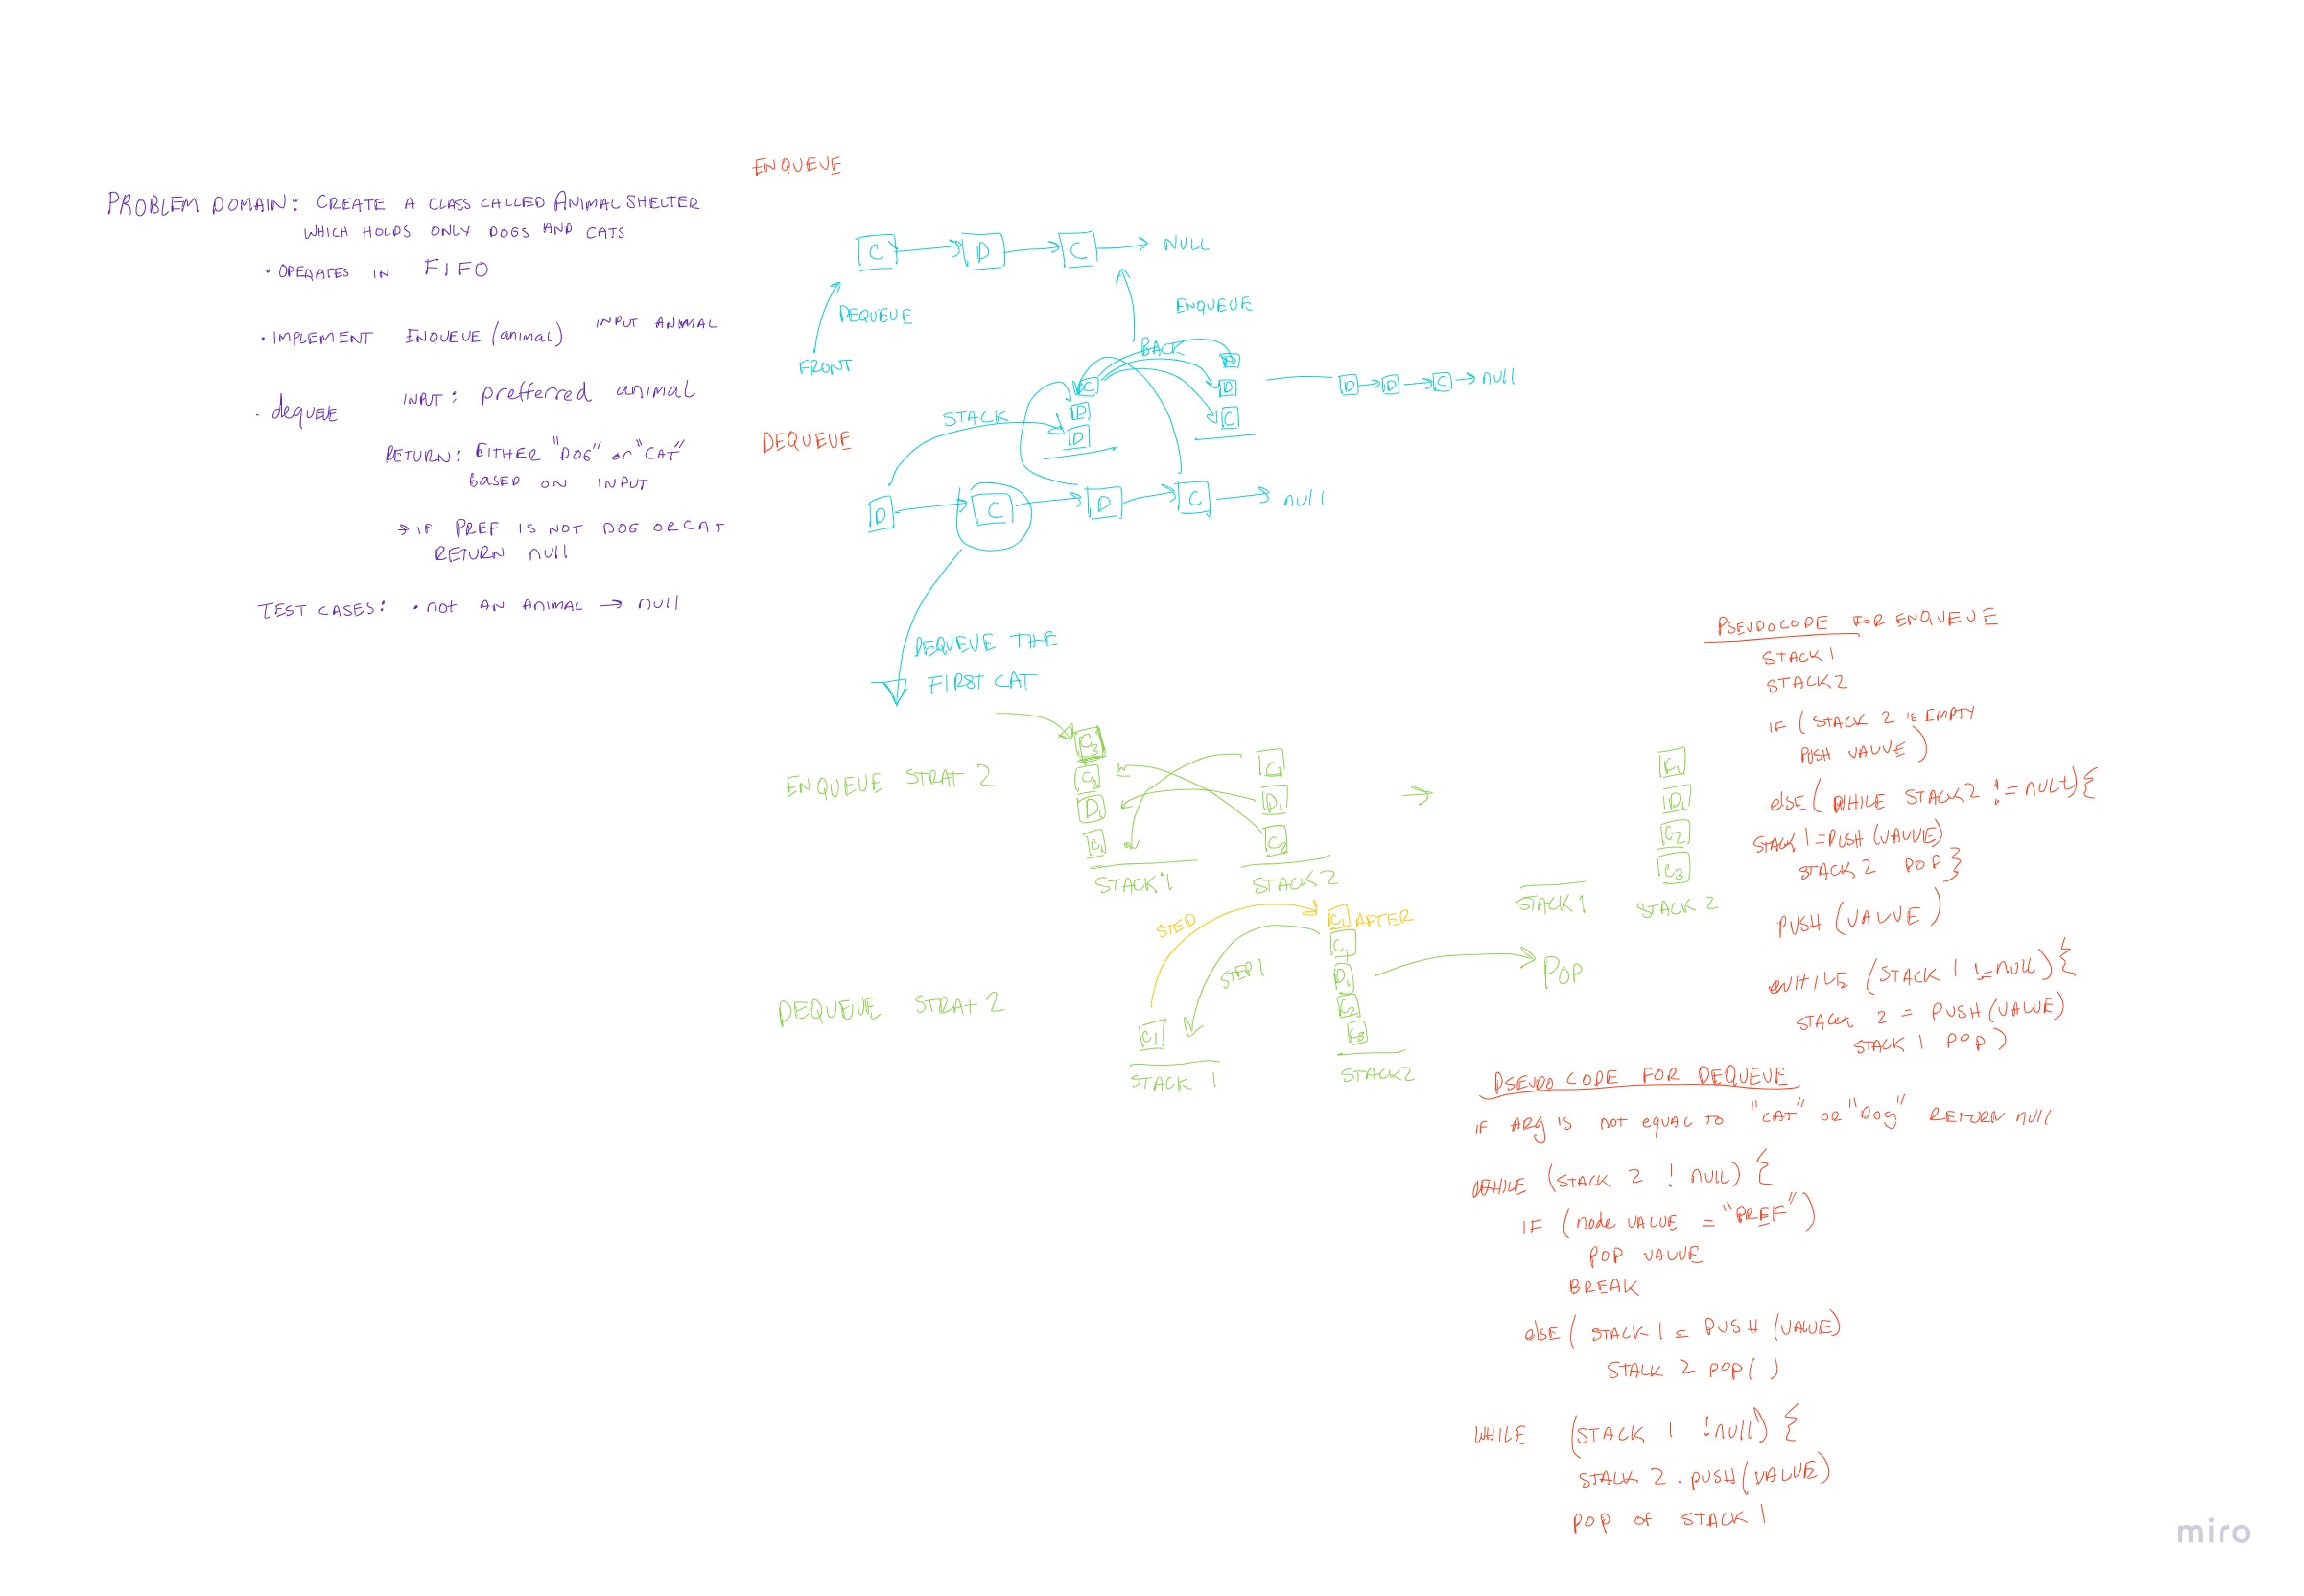 PROBLEM DOMAIN: CREATE A CLASS CALLED ANIMAL SHELTER
WHICH HOLDS ONLY DOGS AND CATS
• OPERATES IN FIFO
• IMPLEMENT ENQUEUE (animal) INPUT ANIMAL
• dequeue INPUT: prefferred animal
RETURN: EITHER "DOG" or "CAT"
BASED ON INPUT
→ IF PREF IS NOT DOG OR CAT
RETURN null
TEST CASES: • not AN ANIMAL → null
ENQUEUE
C D C NULL
DEQUEUE
FRONT
ENQUEUE
BACK
C
D
D
D
D
C
D D C null
STACK
DEQUEUE
D C D C null
DEQUEUE THE
FIRST CAT
ENQUEUE STRAT 2
C3
C2
D1
C1
STACK 1
C1
D1
C2
STACK 2
STACK 1
C1
D1
C2
C3
STACK 2
DEQUEUE STRAT 2
C1
STACK 1
STEP 1
C1 AFTER
C1
D1
C2
C3
STACK 2
POP
PSEUDOCODE FOR ENQUEUE
STACK 1
STACK 2
IF (STACK 2 is EMPTY
PUSH VALUE)
else ( WHILE STACK 2 != NULL) {
STACK 1 = PUSH (VALUE)
STACK 2 POP }
PUSH (VALUE)
WHILE (STACK 1 != NULL) {
STACK 2 = PUSH (VALUE)
STACK 1 POP )
PSEUDO CODE FOR DEQUEUE
IF ARG IS not equal TO "CAT" OR "Dog" RETURN null
WHILE (STACK 2 ! NULL) {
IF (node VALUE = "PREF")
POP VALUE
BREAK
else ( STACK 1 = PUSH (VALUE)
STACK 2 POP ( )
WHILE (STACK 1 !null) {
STACK 2 . PUSH (VALUE)
POP of STACK 1
miro